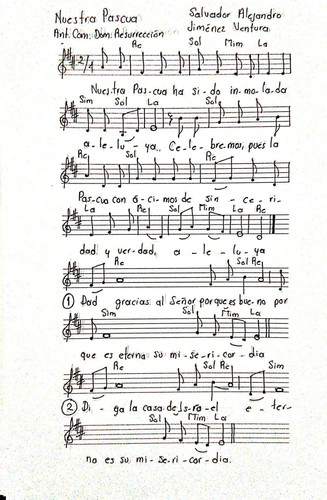 Nuestra Pascua
Salvador Alejandro
Ant. Com. Dom. Resurrección
Jiménez Ventura.
Re Sol Mim La
2/4
Nuestra Pas-cua ha si-do in-mo-la-da
Sim Sol La Sol
a-le-lu-ya.. Ce-le-bre-mos, pues la
Re Sol Re
Pas-cua con á-ci-mos de sin-ce-ri-
La Re Sol Mim La Re
dad y ver-dad, a-le-lu-ya
Re Sol Re
① Dad gracias al Señor porque es bue-no por
Sim Sol Mim La
que es eterna su mi-se-ri-cor-dia
Re Sol Re Sim
② Di-ga la casa de Is-ra-el e-ter-
Sol Mim La
na es su mi-se-ri-cor-dia.